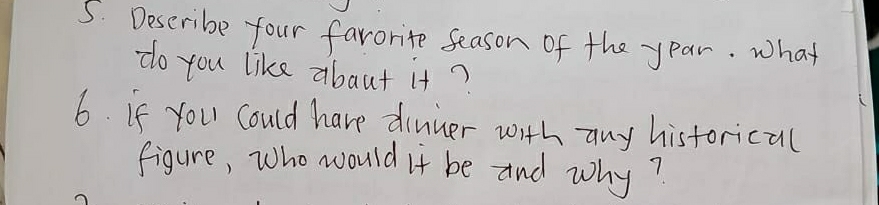 5. Describe your favorite season of the year. What
do you like about it?
6. if you could have dinner with any historical
figure, who would it be and why?